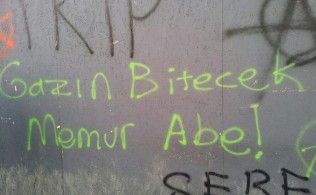 TRIP
Gazın Bitecek
Memur Abe!
SERE